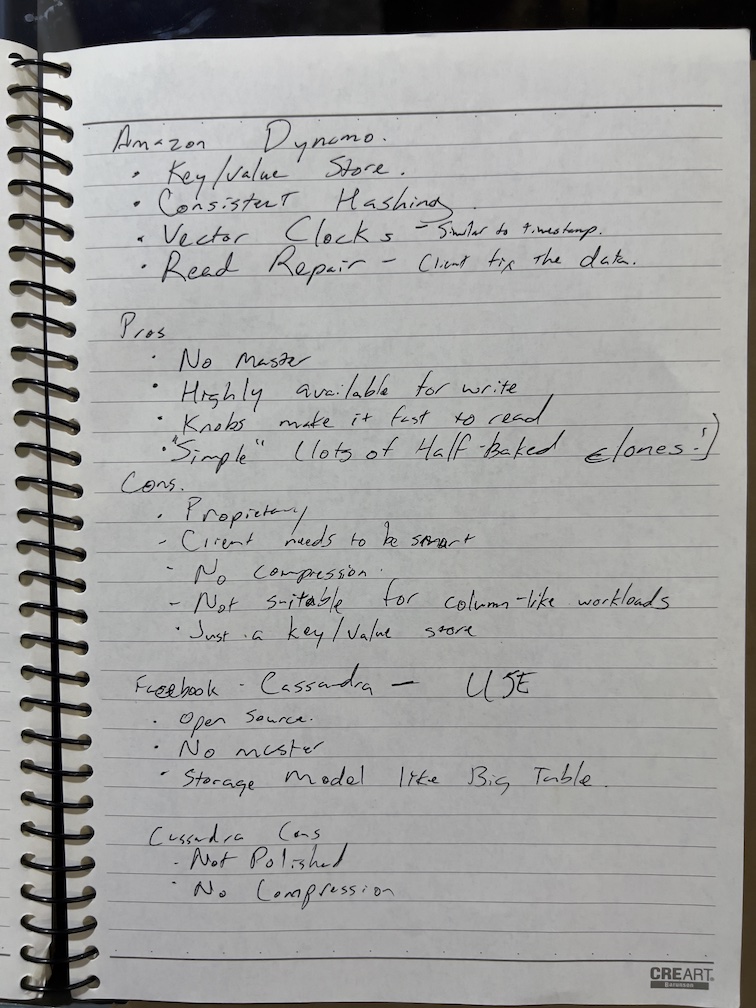 Amazon Dynamo.
• Key/Value Store.
• Consistent Hashing.
• Vector Clocks - Similar to timestamp.
• Read Repair - Client fix the data.
Pros
• No Master
• Highly available for write
• Knobs make it fast to read
• "Simple" (lots of Half-Baked clones!)
Cons.
• Propietary
- Client needs to be smart
- No compression.
- Not suitable for column-like workloads
• Just a key/value store
Facebook - Cassandra — USE
• Open Source.
• No master
• Storage Model like Big Table.
Cassandra Cons
- Not Polished
• No Compression
CREART